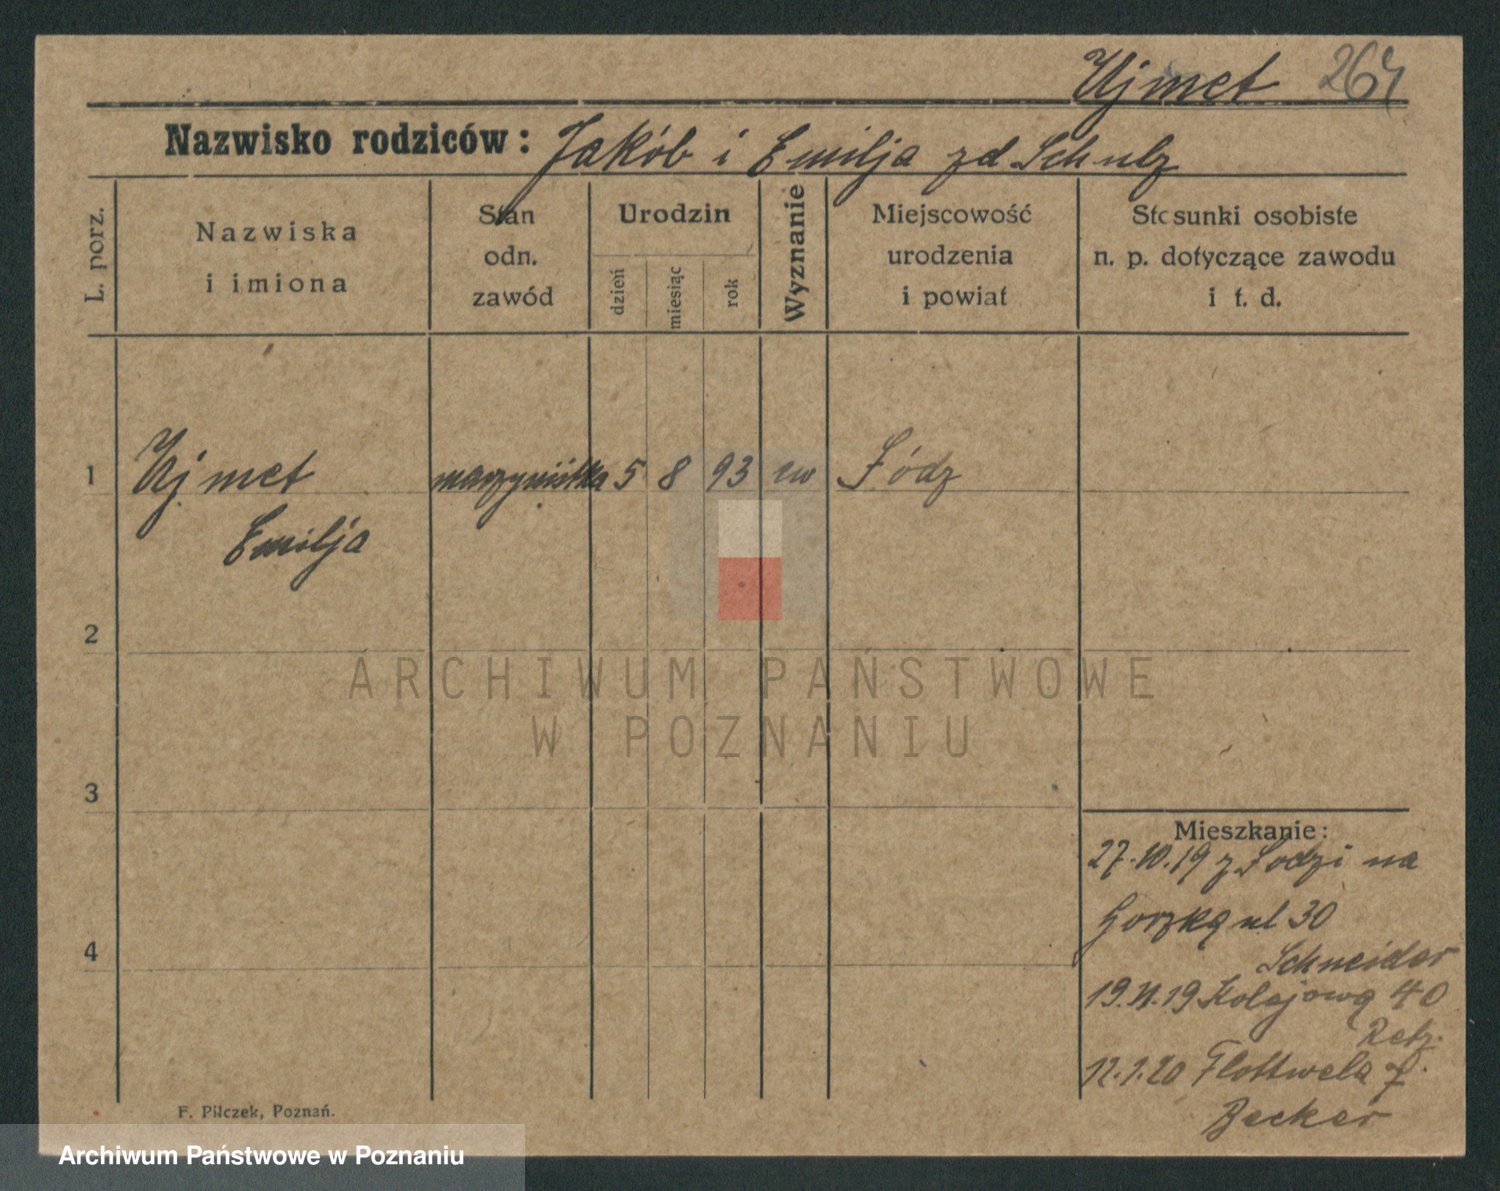 Ujmet 264
Nazwisko rodziców: Jakób i Emilja zd Schulz
L. porz.
Nazwiska
i imiona
Stan
odn.
zawód
Urodzin
dzień
miesiąc
rok
Wyznanie
Miejscowość
urodzenia
i powiat
Stosunki osobiste
n. p. dotyczące zawodu
i t. d.
1 Ujmet maszynistka 5 8 93 ew Łódz
Emilja
2
3
4
Mieszkanie:
27.10.19 z Łodzi na
Gorzką ul 30
Schneider
19.11.19 Kolejową 40
Retz.
12.1.20 Flottwela 7.
Becker
F. Pilczek, Poznań.
ARCHIWUM PAŃSTWOWE
W POZNANIU
Archiwum Państwowe w Poznaniu